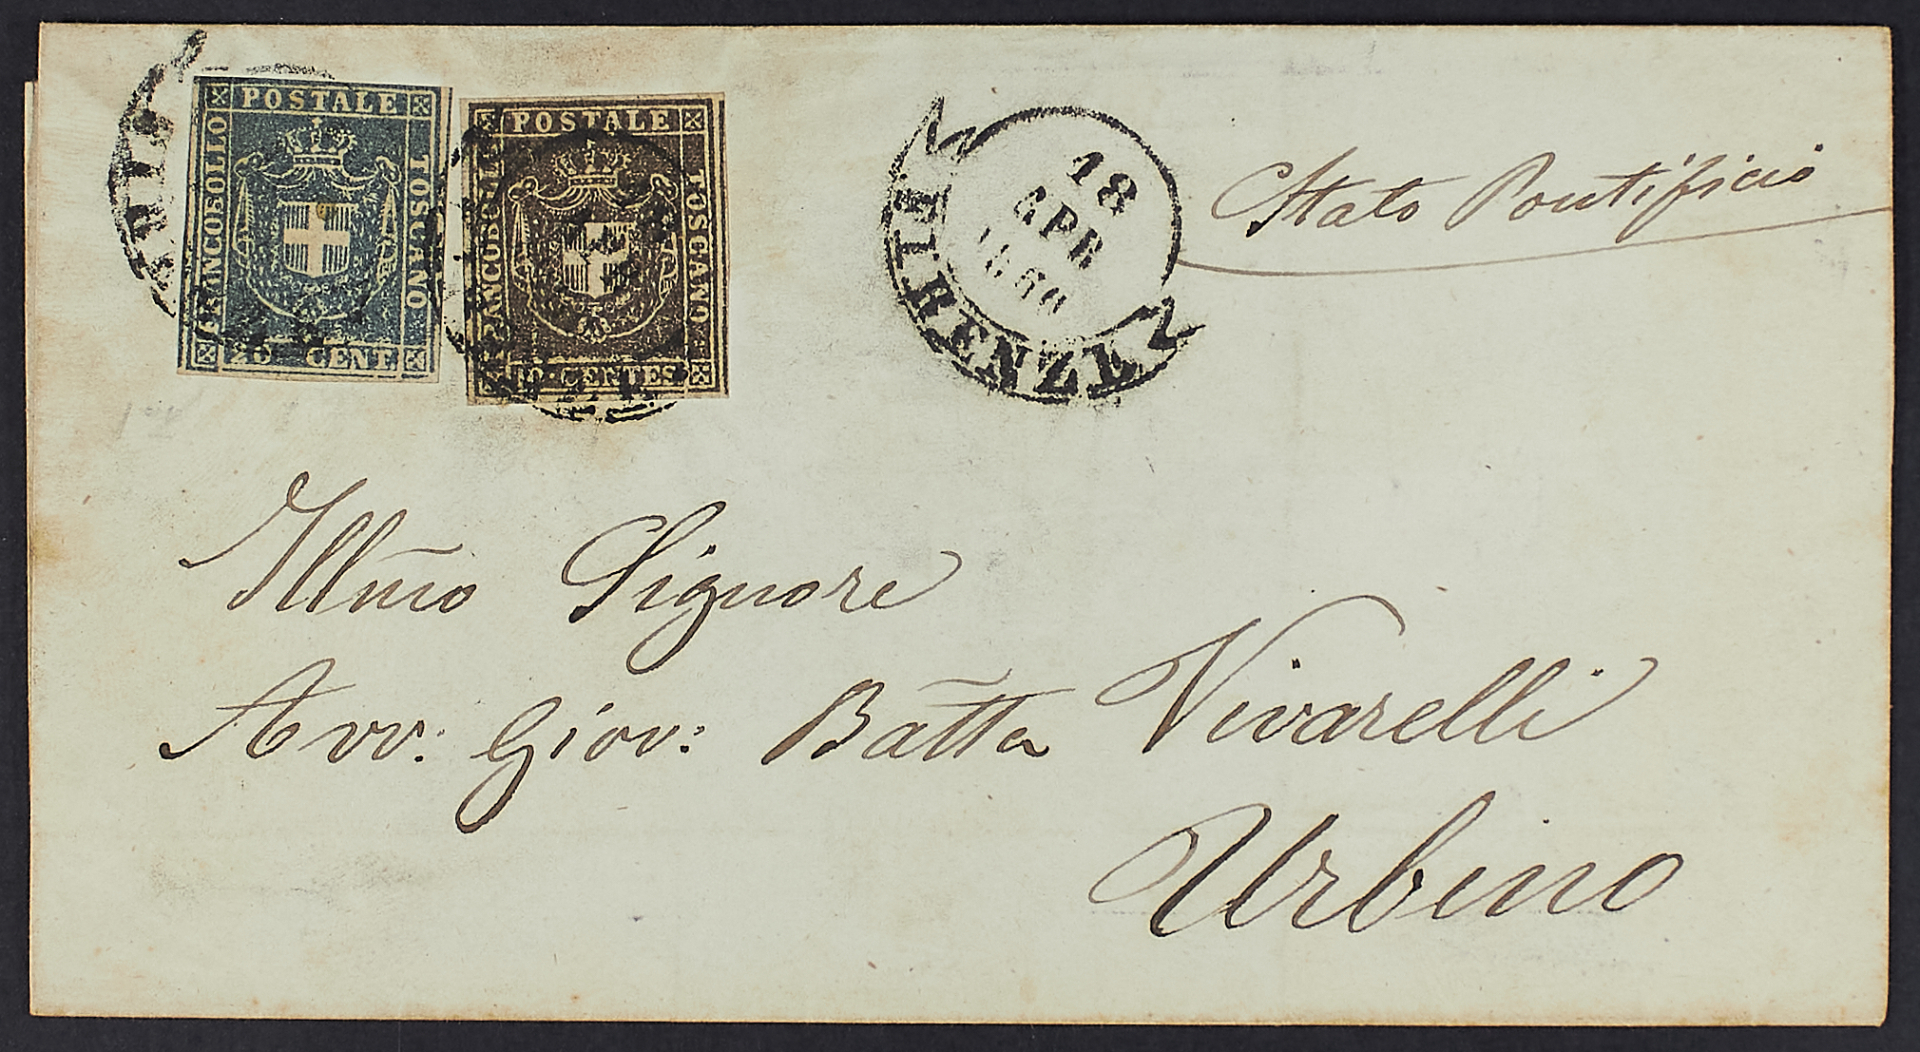 POSTALE
FRANCOBOLLO
TOSCANO
20 CENT
POSTALE
FRANCOBOLLO
TOSCANO
10 · CENTES
18
APR
1860
FIRENZE
Stato Pontificio
Illm̃o Signore
Avv: Giov: Bat̃ta Vivarelli
Urbino